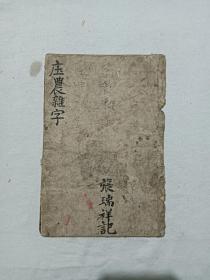 庄農雜字
張瑞祥記